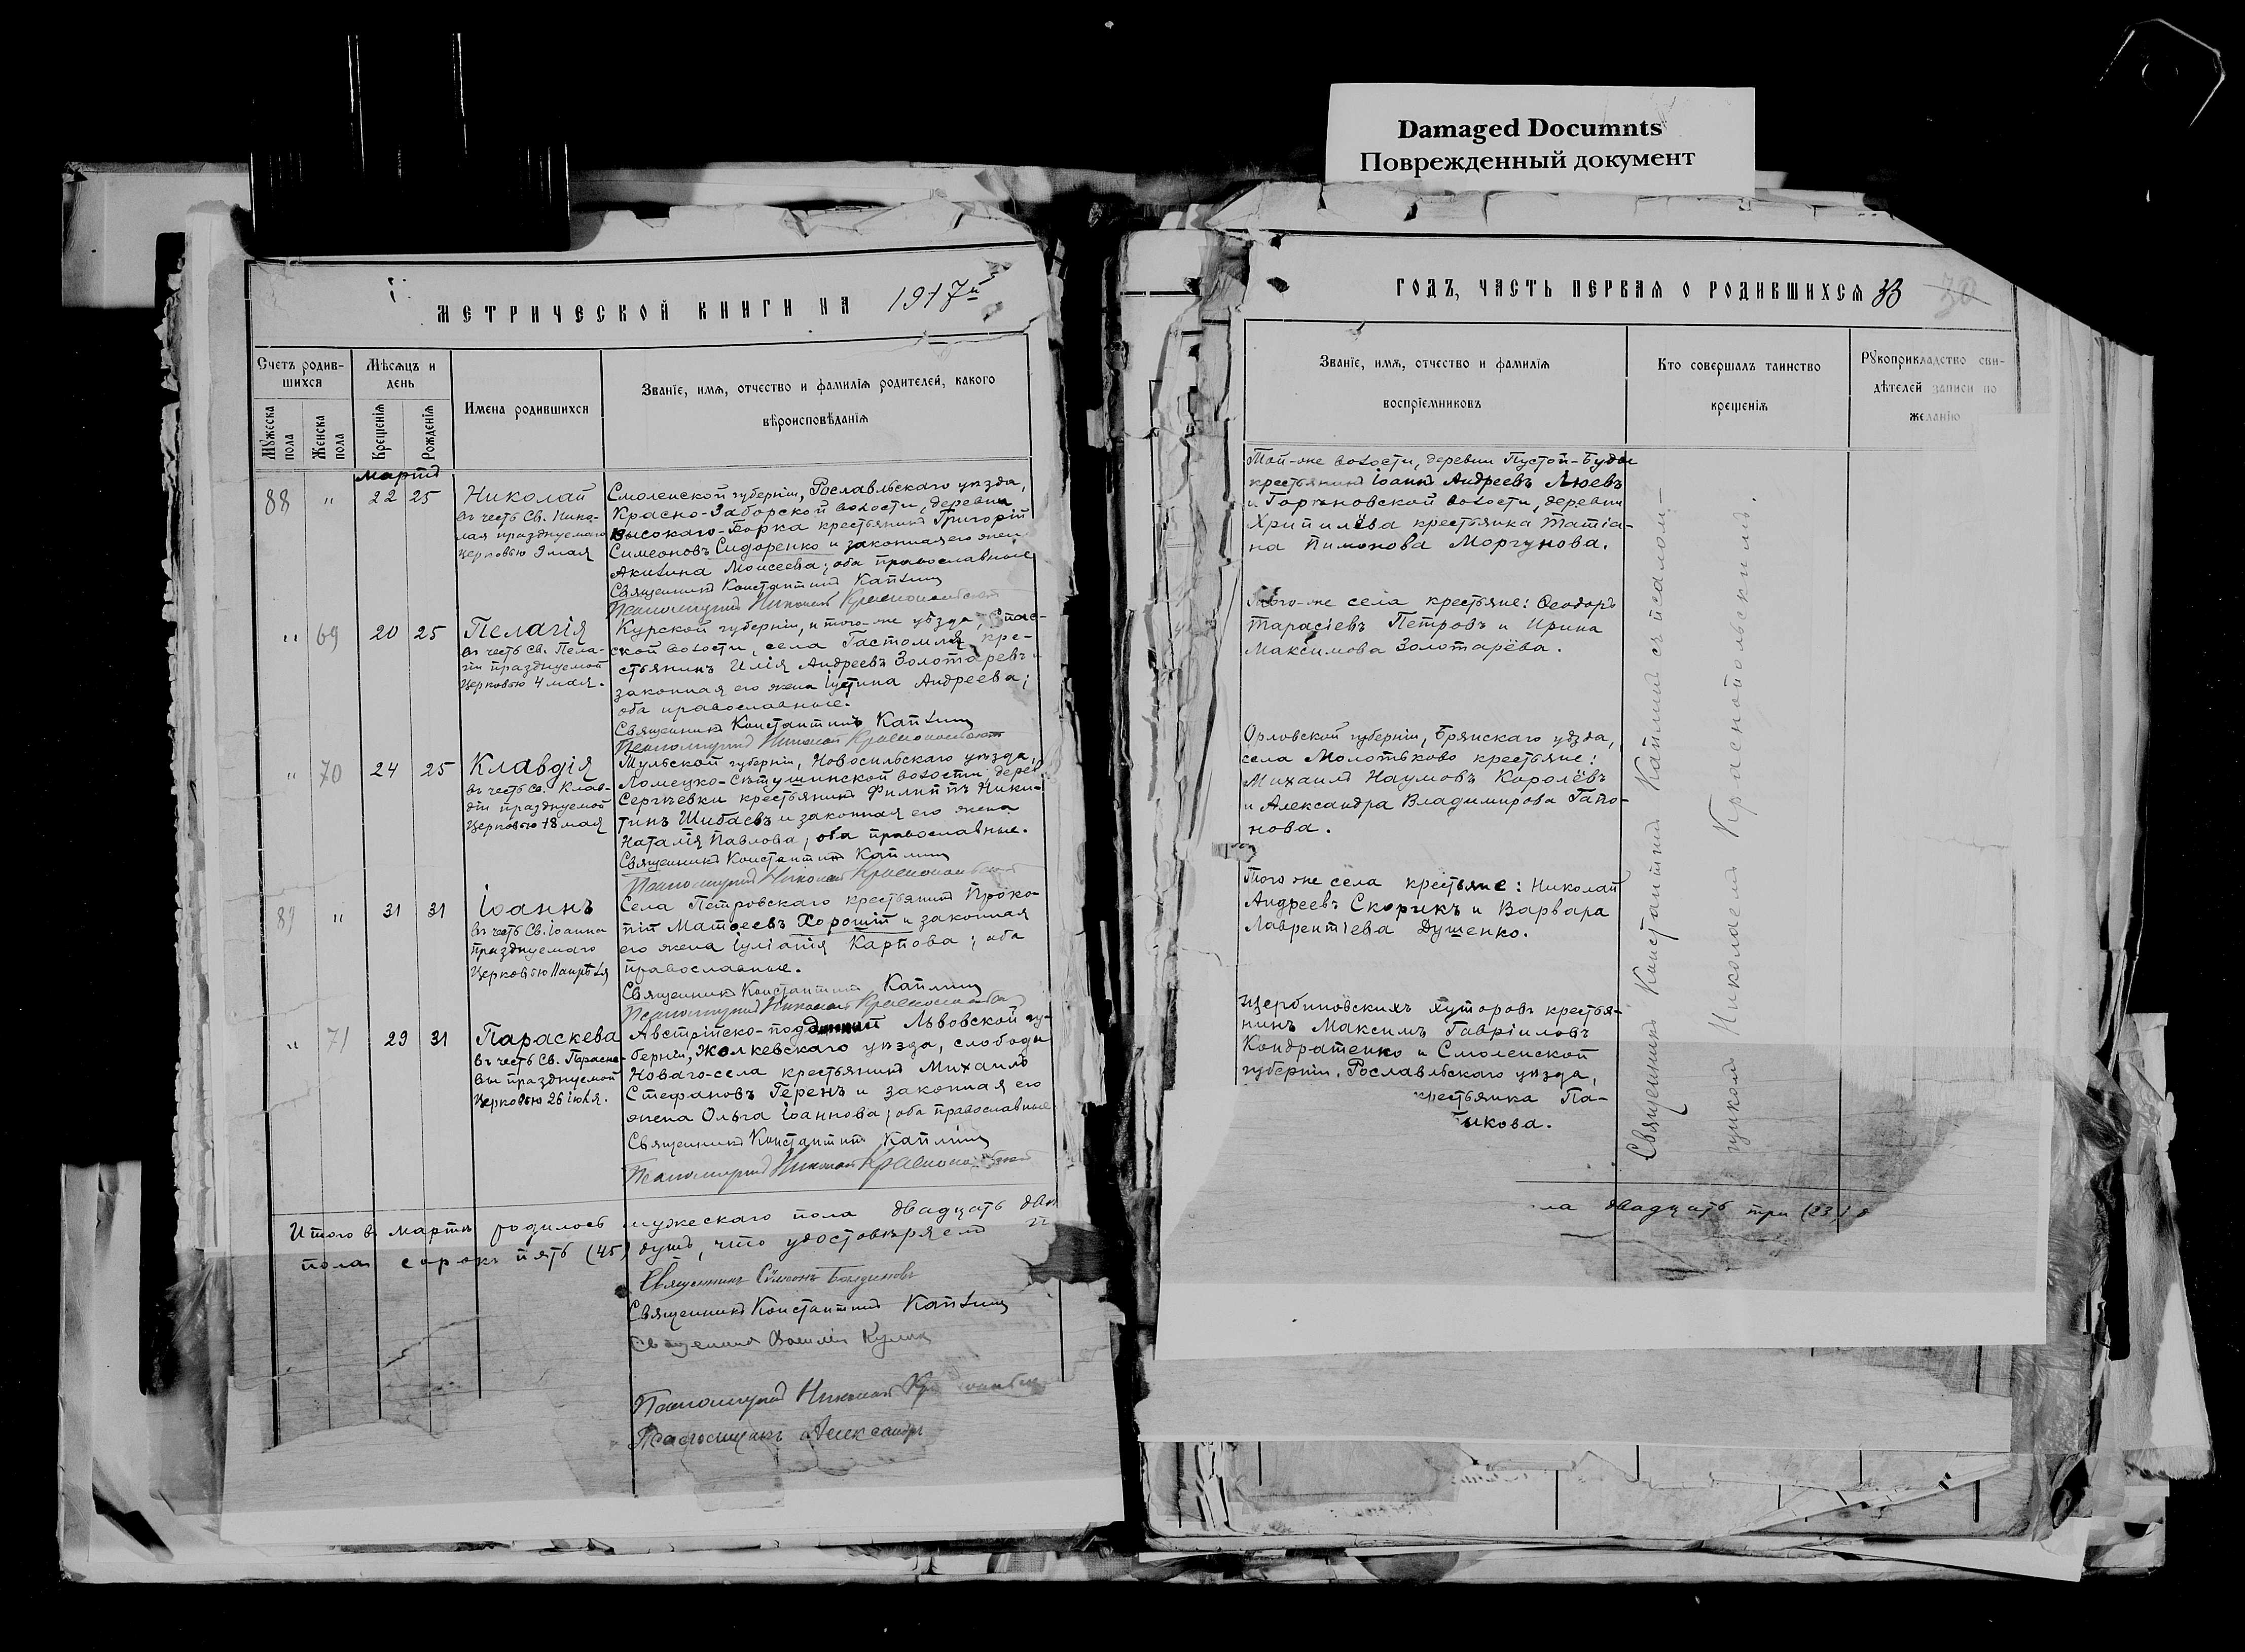 Damaged Documnts
Поврежденный документ
МЕТРИЧЕСКОЙ КНИГИ НА 1917й
Счетъ родив-
шихся
Мѣсяцъ и
день
Имена родившихся
Званіе, имя, отчество и фамилія родителей, какого
вѣроисповѣданія
Мужеска пола
Женска пола
Крещенія
Рожденія
мартъ
88 " 22 25
Николай
въ честь Св. Нико-
лая празднуемаго
церковью 9 мая
Смоленской губерніи, Рославльскаго уѣзда,
Красно-Заборской волости, деревни
Высокаго-Борка крестьянинъ Григорій
Симеоновъ Сидоренко и законная его жена
Акилина Моисеева; оба православные
Священникъ Константинъ Каплинъ
Псаломщикъ Николай Краснопольскій
" 69 20 25
Пелагія
въ честь Св. Пела-
гіи празднуемой
церковью 4 мая.
Курской губерніи, и того-же уѣзда, Спас-
ской волости, села Гастомля, кре-
стьянинъ Илія Андреевъ Золотаревъ и
законная его жена Іустина Андреева;
оба православные.
Священникъ Константинъ Каплинъ
Псаломщикъ Николай Краснопольскій
" 70 24 25
Клавдія
въ честь Св. Клав-
діи празднуемой
церковью 18 мая
Тульской губерніи, Новосильскаго уѣзда,
Ломецко-Сѣтушинской волости, дерев.
Сергѣевки крестьянинъ Филиппъ Ники-
тинъ Шибаевъ и законная его жена
Наталія Павлова; оба православные.
Священникъ Константинъ Каплинъ
Псаломщикъ Николай Краснопольскій
89 " 31 31
Іоаннъ
въ честь Св. Іоанна
празднуемаго
церковью апрѣля
Села Петровскаго крестьянинъ Проко-
пій Матѳеевъ Хорошій и законная
его жена Іуліанія Карпова; оба
православные.
Священникъ Константинъ Каплинъ
Псаломщикъ Николай Краснопольскій
" 71 29 31
Параскева
въ честь Св. Параске-
вы празднуемой
церковью 26 іюля.
Австрійско-подданный Львовской гу-
берніи, Жолкевскаго уѣзда, слободы
Новаго-села крестьянинъ Михаилъ
Стефановъ Геренъ и законная его
жена Ольга Іоаннова; оба православные
Священникъ Константинъ Каплинъ
Псаломщикъ Николай Краснопольскій
Итого въ мартѣ родилось мужескаго пола двадцать два
пола сорокъ пять (45) душъ, что удостовѣряемъ
Священникъ Симеонъ
Священникъ Константинъ Каплинъ
Священникъ Василій
Псаломщикъ Николай
Псаломщикъ Александръ
ГОДЪ, ЧАСТЬ ПЕРВАЯ О РОДИВШИХСЯ 33 30
Званіе, имя, отчество и фамилія
воспріемниковъ
Кто совершалъ таинство
крещенія
Рукоприкладство сви-
дѣтелей записи по
желанію
Той-же волости, деревни Пустой-Буды
крестьянинъ Іоаннъ Андреевъ Люевъ
и Горяновской волости, деревни
Хрипилёва крестьянка Татіа-
на Пимонова Моргунова.
Того-же села крестьяне: Ѳеодоръ
Тарасіевъ Петровъ и Ирина
Максимова Золотарёва.
Орловской губерніи, Брянскаго уѣзда,
села Молотьково крестьяне:
Михаилъ Наумовъ Королёвъ
и Александра Владимирова Гапо-
нова.
Того же села крестьяне: Николай
Андреевъ Скорикъ и Варвара
Лаврентіева Душенко.
Щербиновскихъ хуторовъ крестья-
нинъ Максимъ Гавріиловъ
Кондратенко и Смоленской
губерніи, Рославльскаго уѣзда,
крестьянка Па-
икова.
Священникъ Константинъ Каплинъ съ псалом-
щикомъ Николаемъ Краснопольскимъ.
ла двадцать три (23)